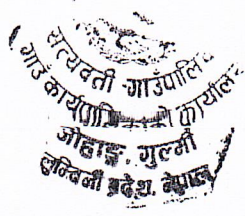 सत्यवती गाउँपालि
गाउँ कार्यपालिकाको कार्यालय
जोहाङ्ग, गुल्मी
लुम्बिनी प्रदेश, नेपाल